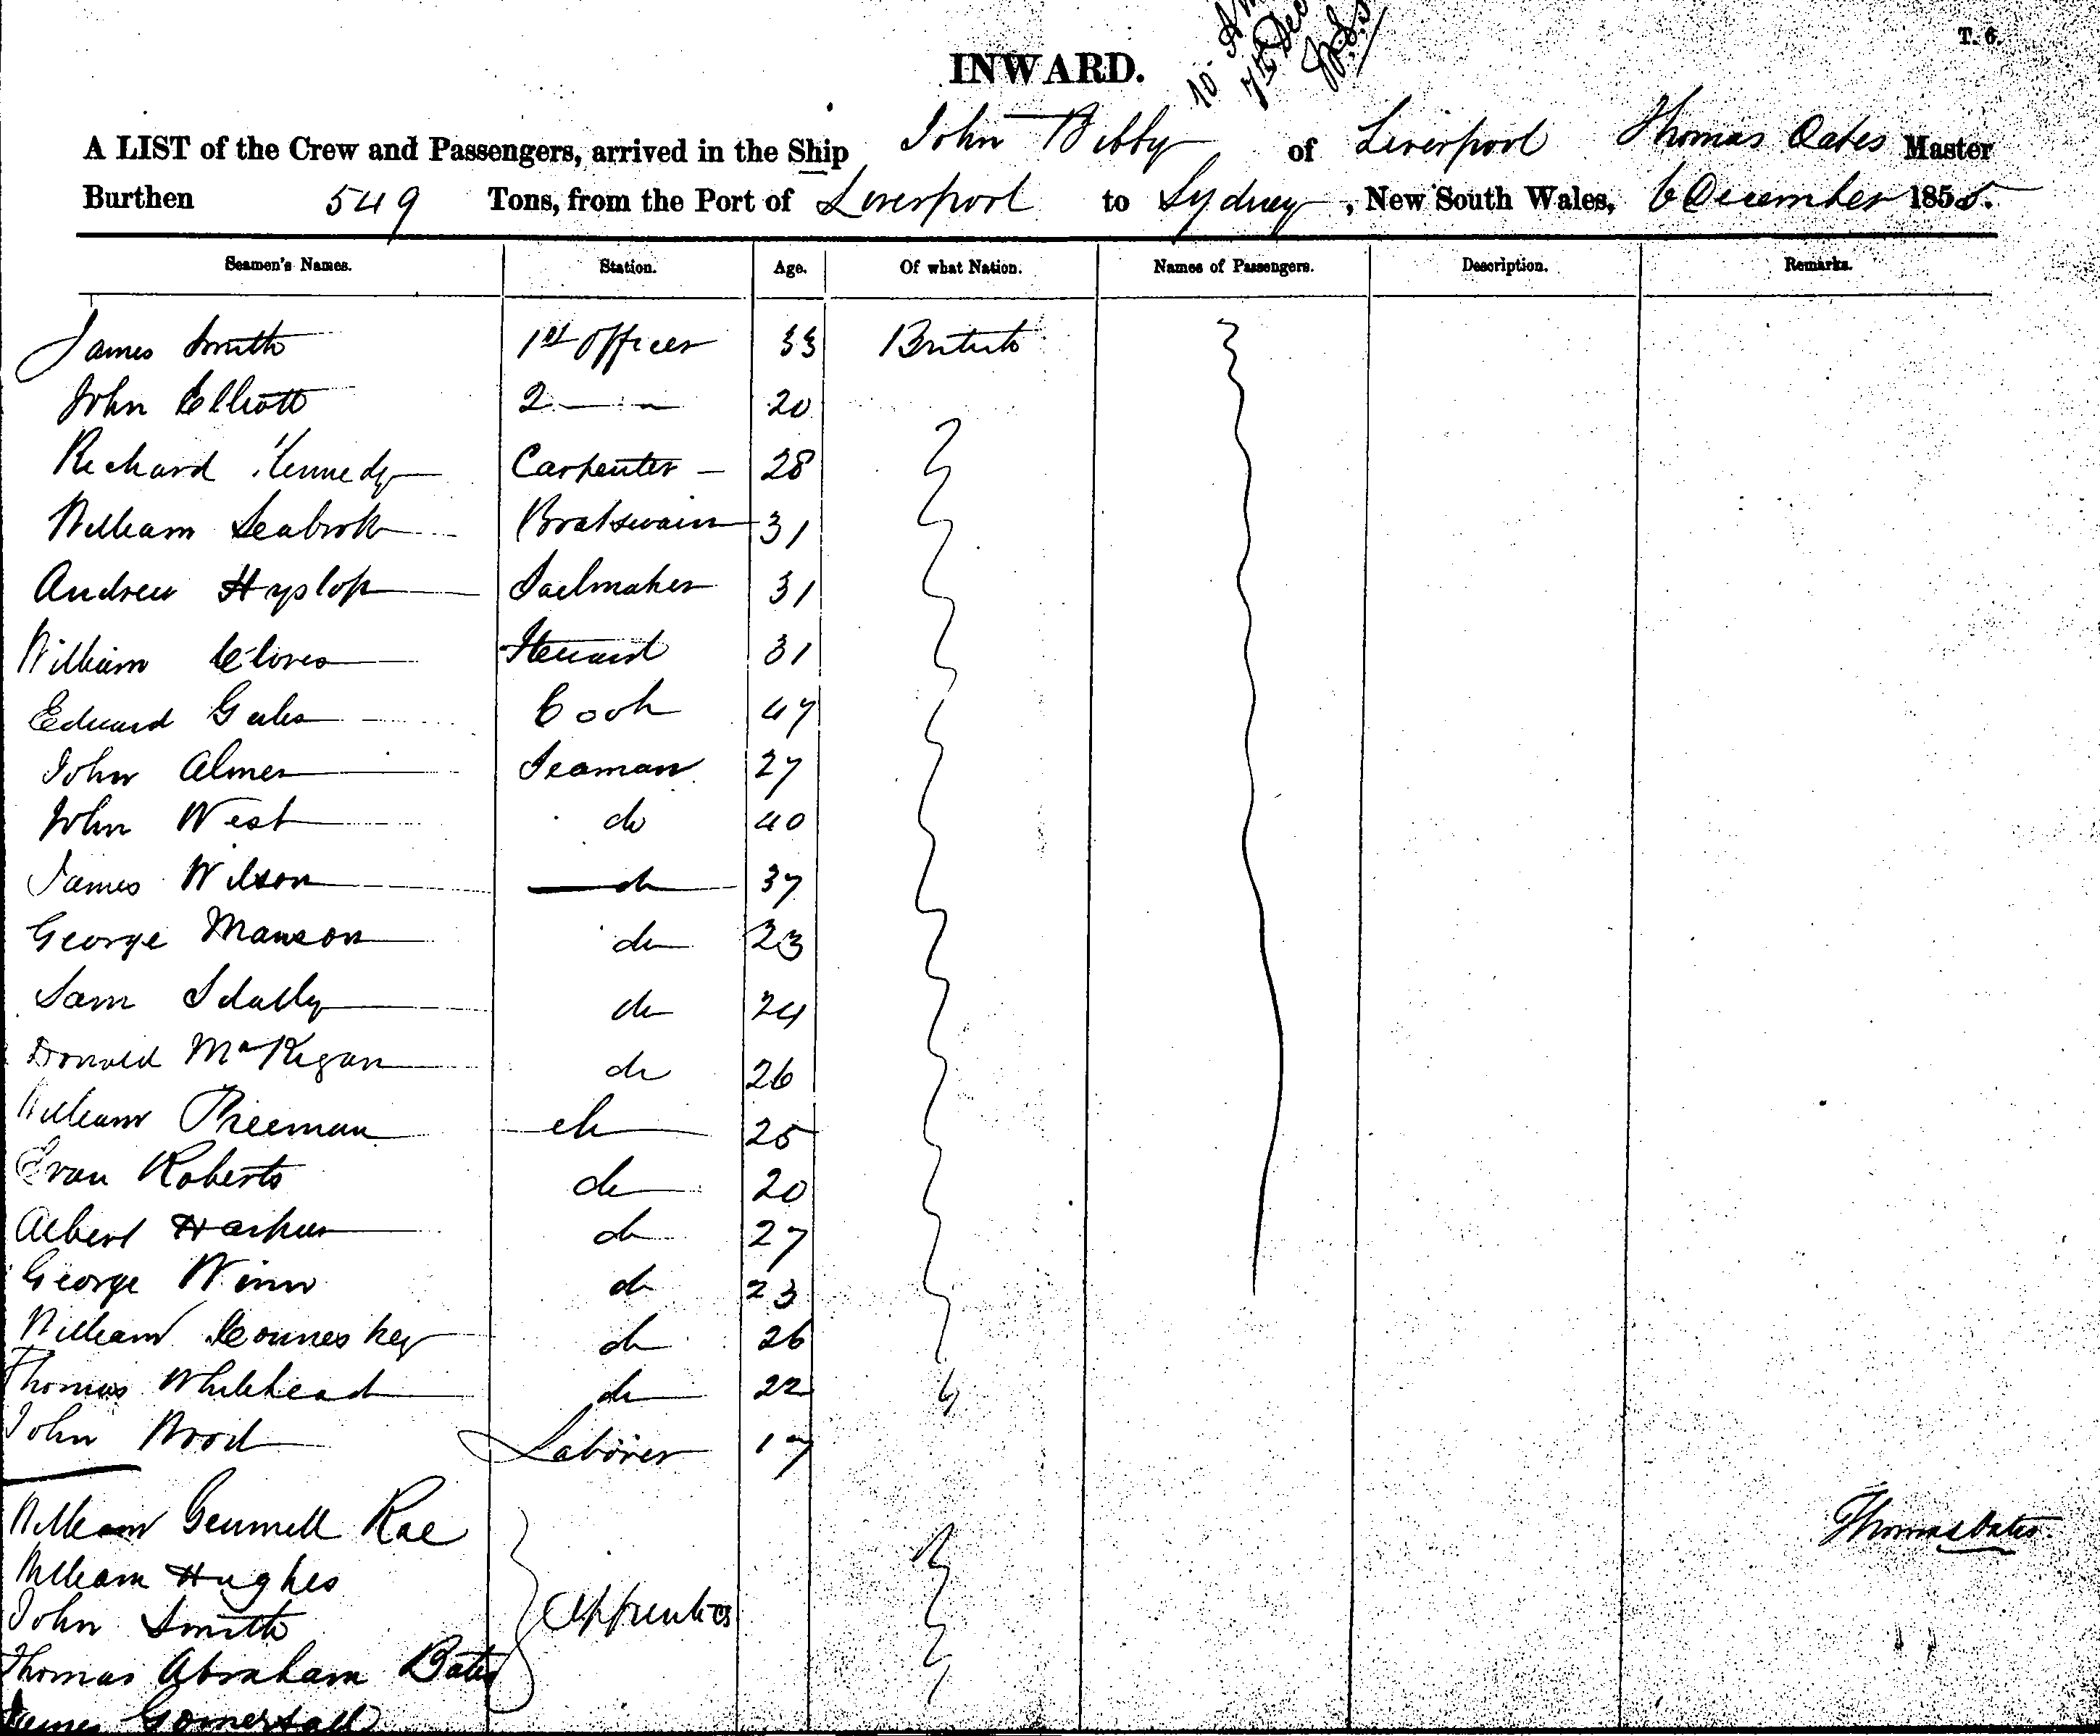 T. 6.
10 Am
7th Dec
INWARD.
A LIST of the Crew and Passengers, arrived in the Ship John Bibby of Liverpool Thomas Oates Master
Burthen 549 Tons, from the Port of Liverpool to Sydney, New South Wales, 6 December 1855.
Seamen's Names. Station. Age. Of what Nation. Names of Passengers. Description. Remarks.
James Smith 1st Officer 33 British
John Elliott 2 — " 20
Richard Kennedy Carpenter 28
William Seabrok Boatswain 31
Andrew Hyslop Sailmaker 31
William Cloves Steward 31
Edward Gales Cook 47
John Almer Seaman 27
John West do 40
James Wilson do 37
George Manson do 23
Sam Scally do 24
Donald McKigan do 26
William Freeman do 25
Evan Roberts do 20
Albert Harkus do 27
George Winn do 23
William Conneskey do 26
Thomas Whitehead do 22
John Wood Laborer 17
William Gemmell Rae
Thomas Oates
William Hughes
John Smith Apprentices
Thomas Abraham Bates
James Gomersall